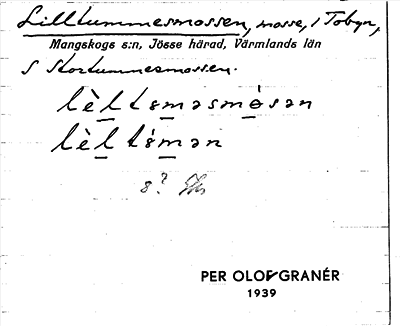 Lilltummesmossen, mosse, i Tobyn,
Mangskogs s:n, Jösse härad, Värmlands län
S Stortummesmossen.
lèltɞməsmósən
lèltɞ́mən
ɞ?
PER OLOF GRANÉR
1939